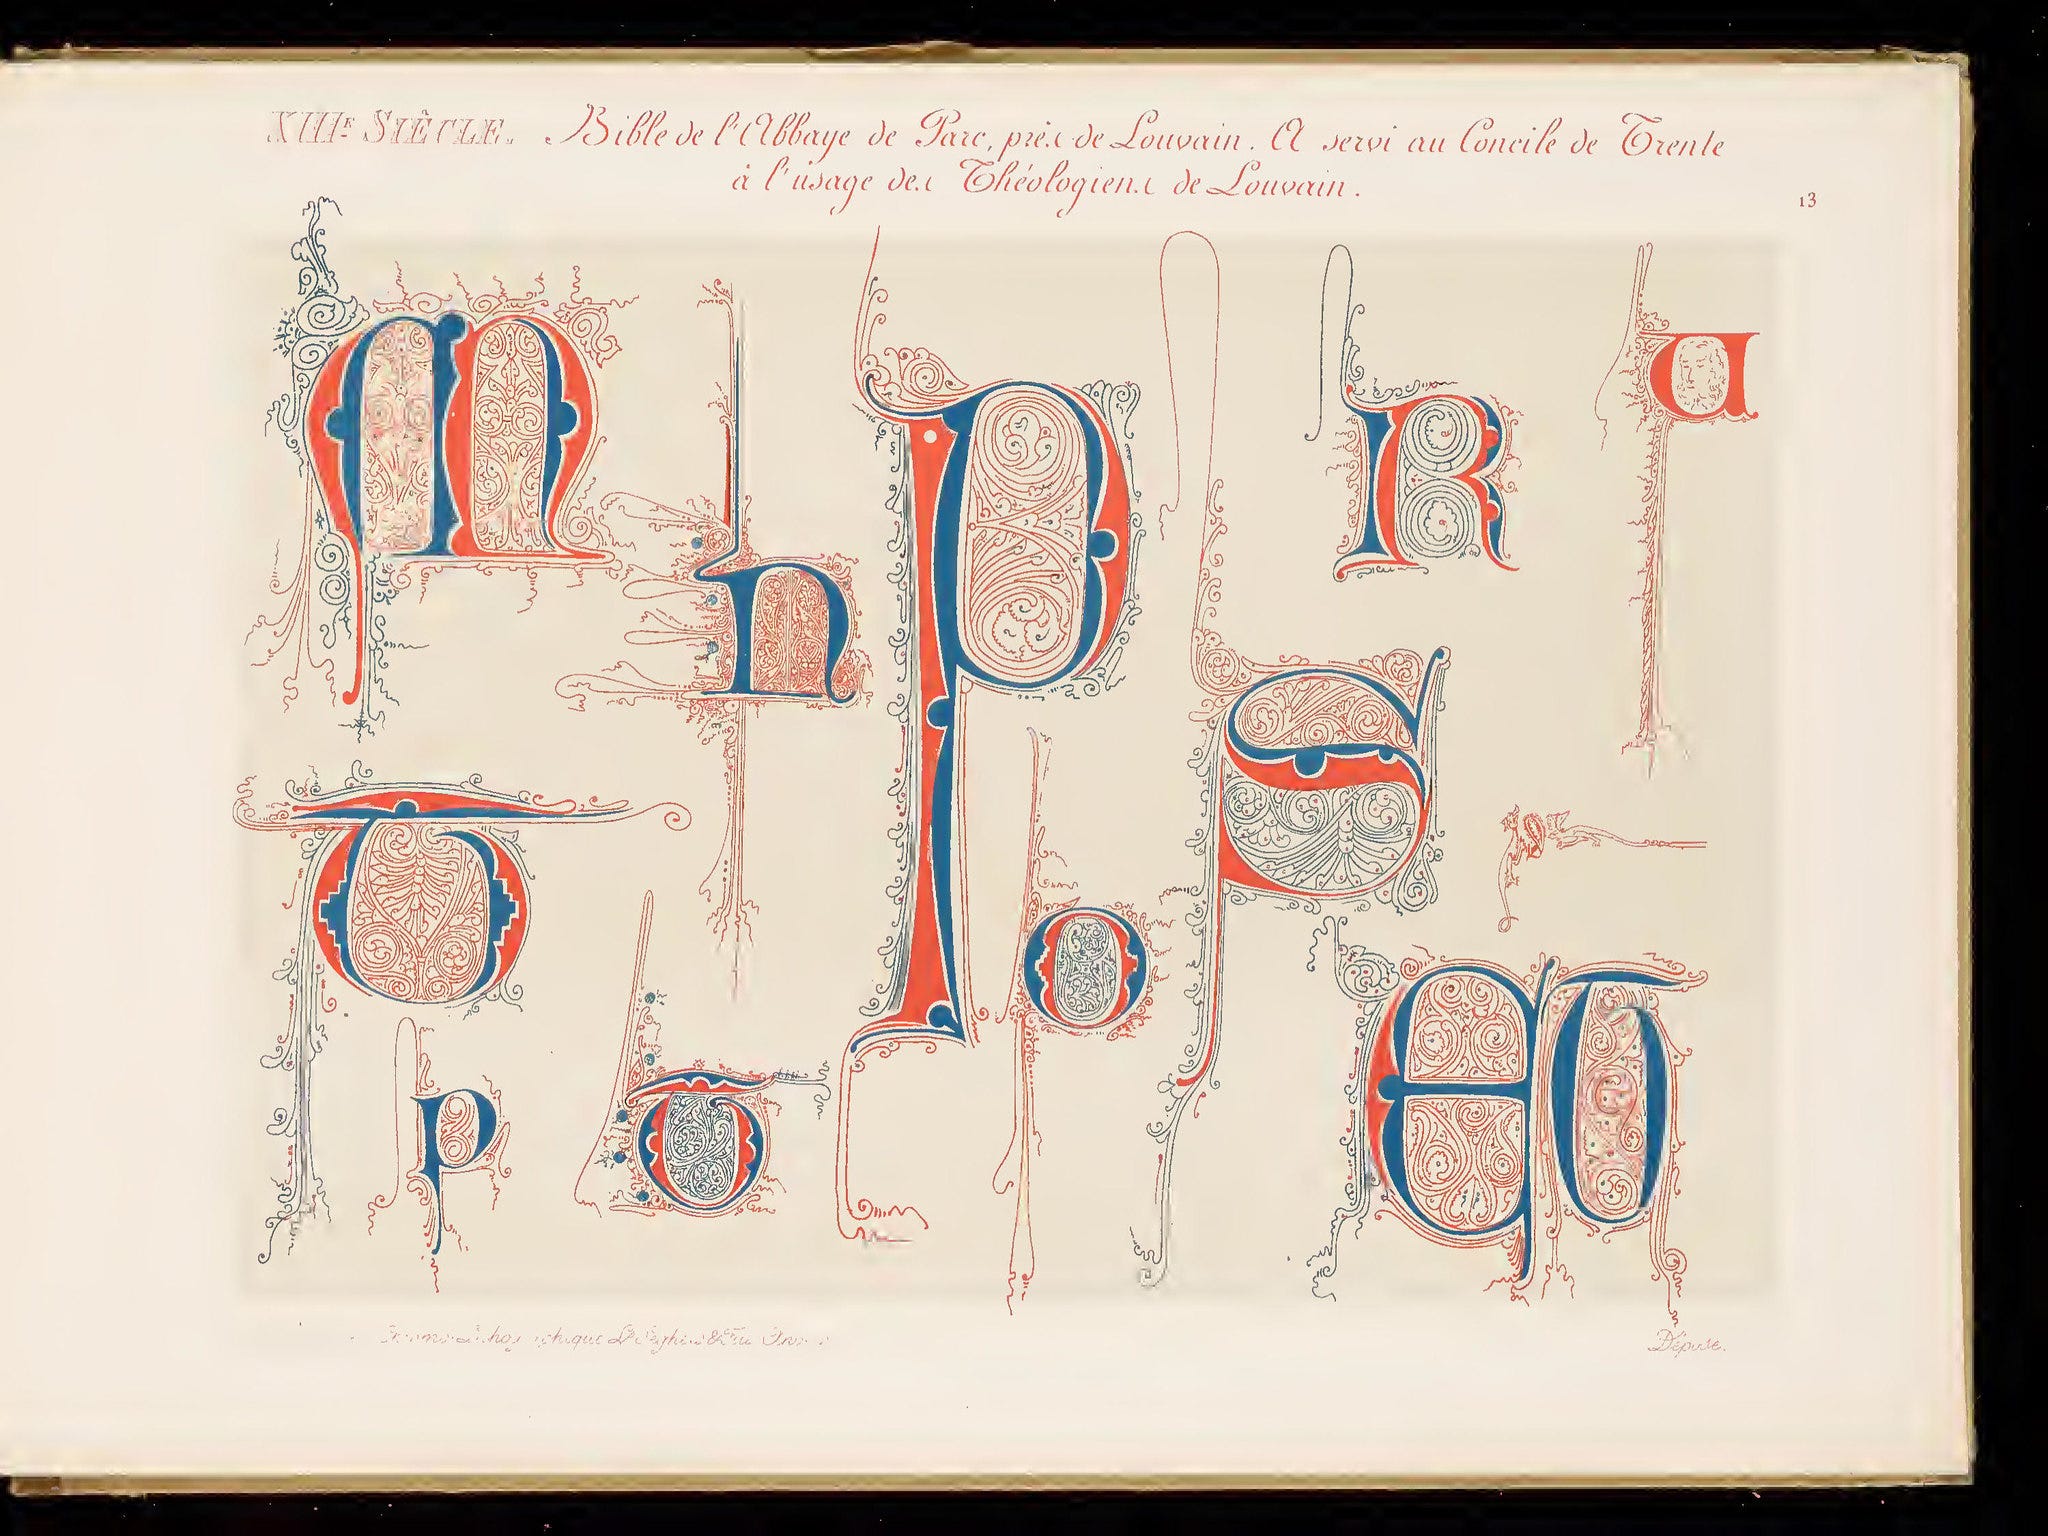 XIIIE SIÈCLE. Bible de l'Abbaye de Parc, près de Louvain. A servi au Concile de Trente
à l'usage des Théologiens de Louvain.
13
M
n
P
R
a
S
T
O
p
T
E T
Déposé.